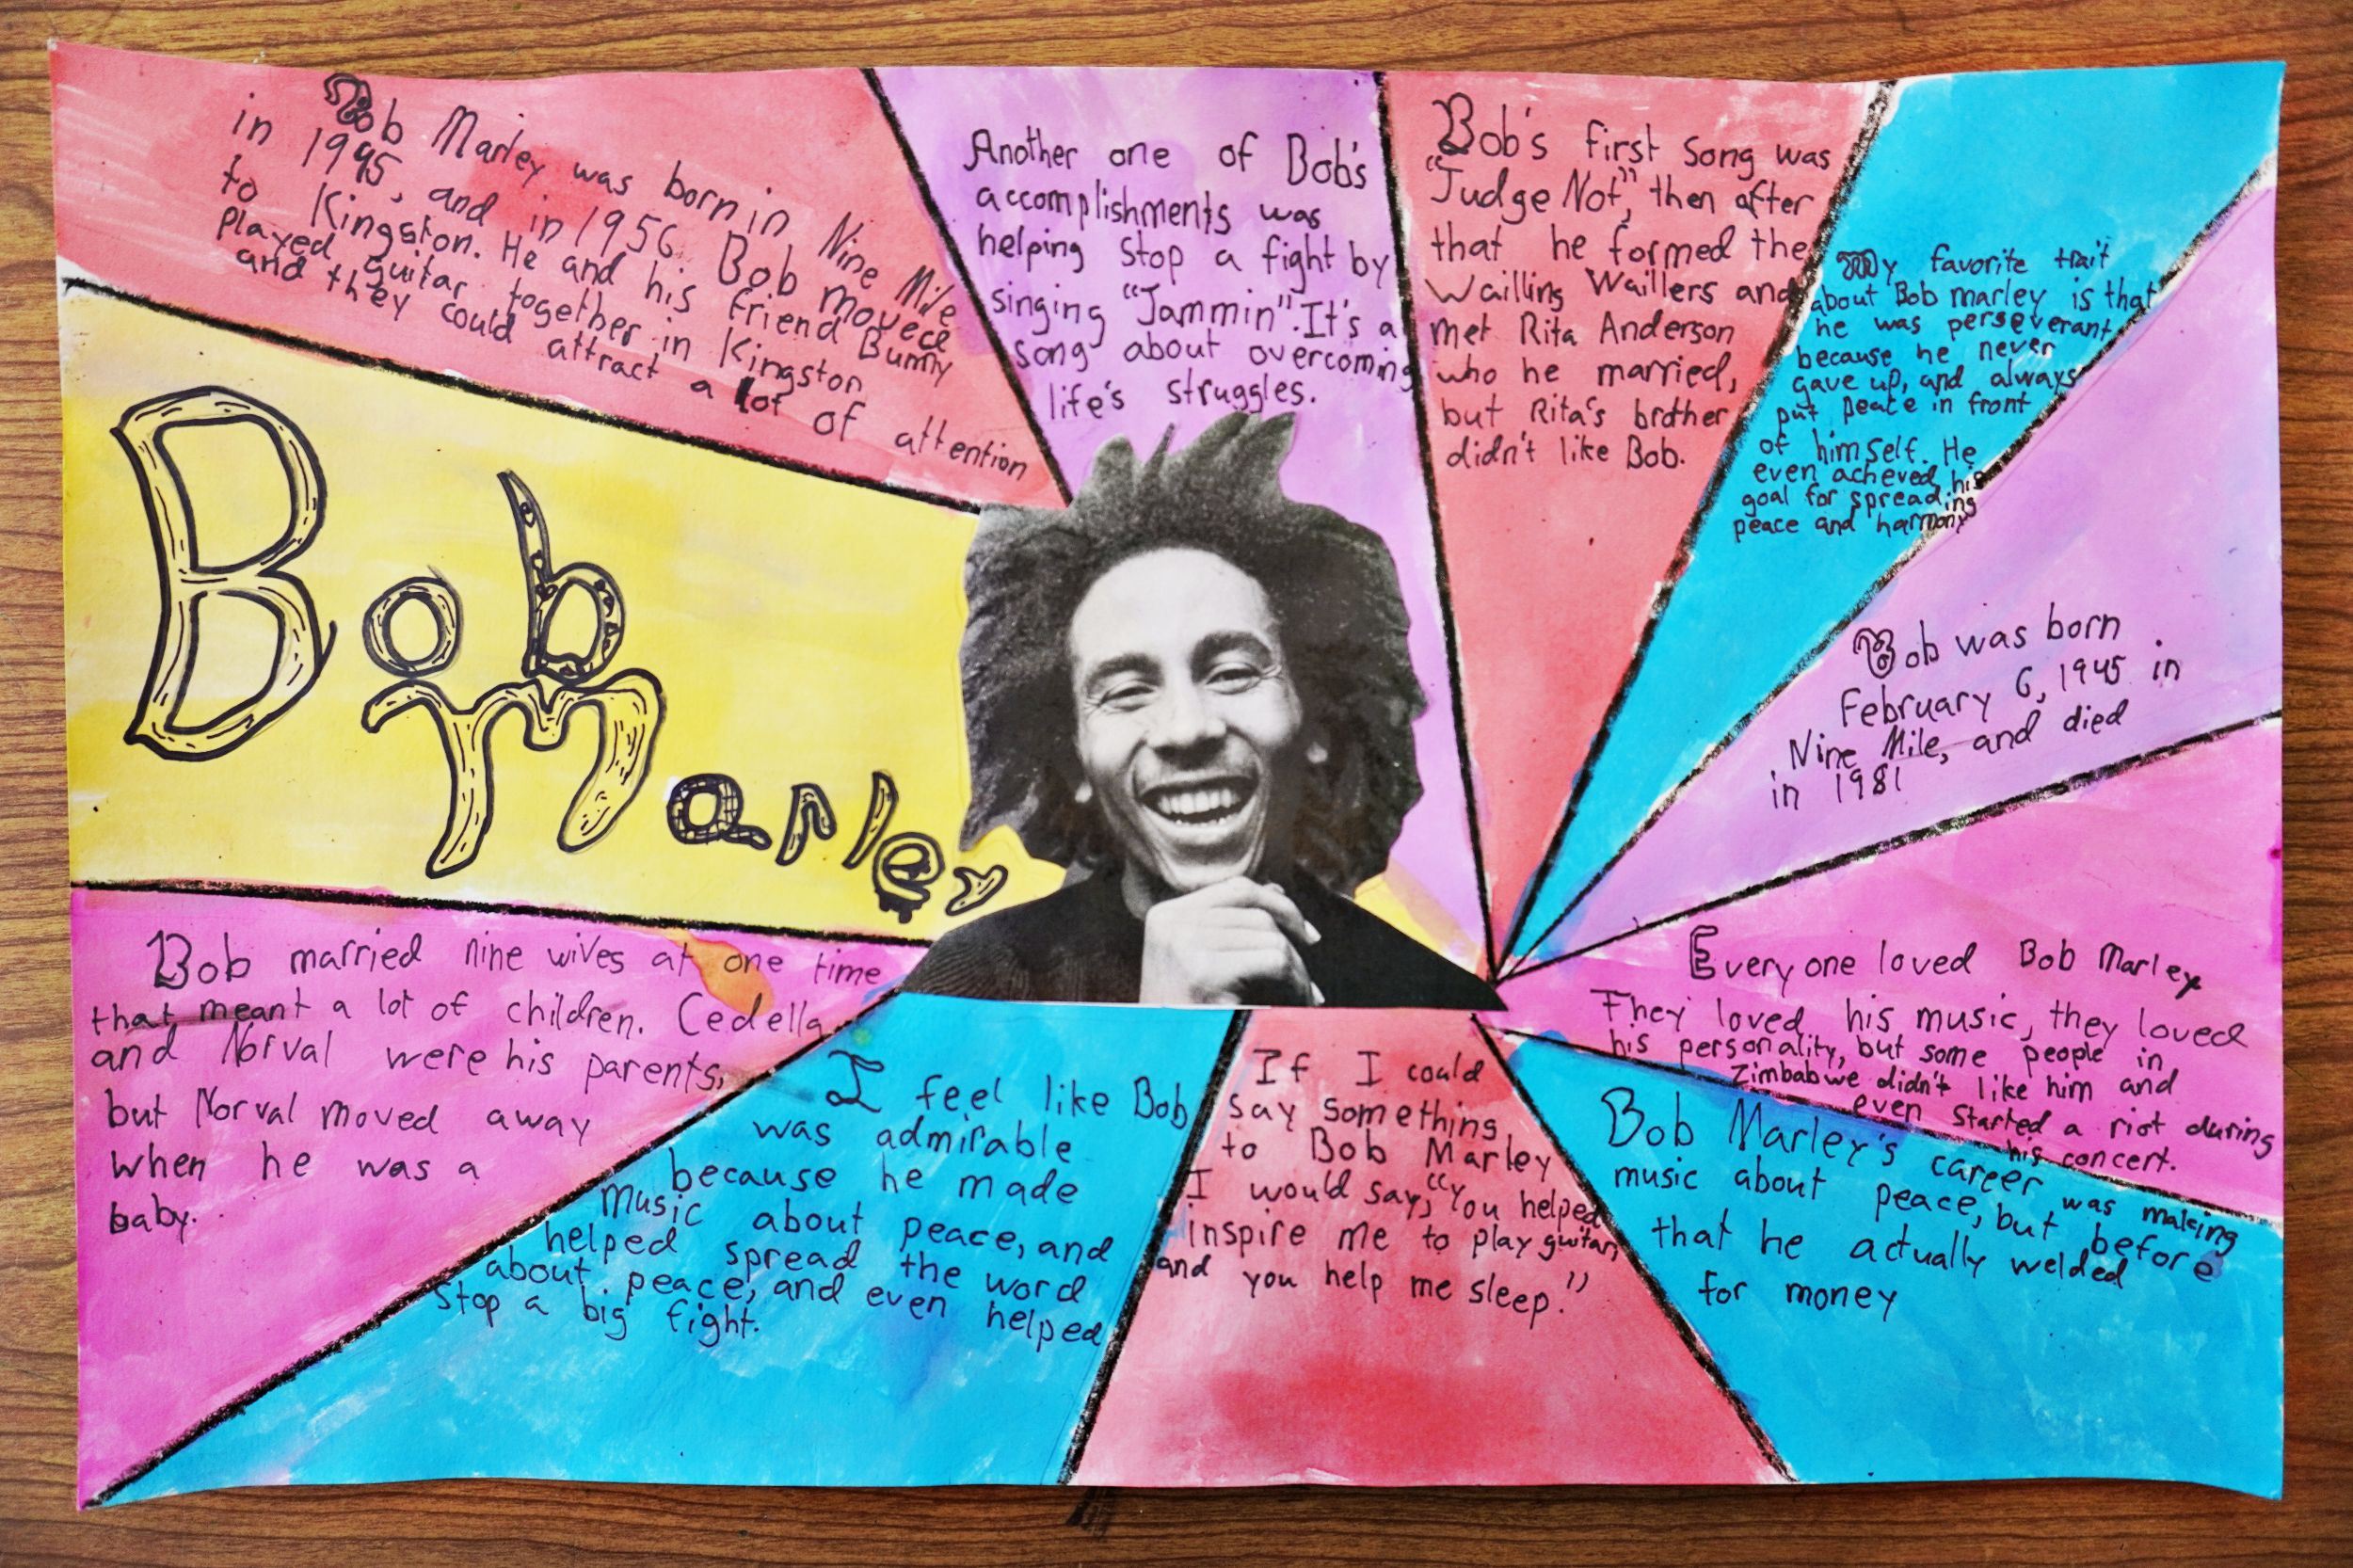 Bob Marley was born in Nine Mile
in 1945, and in 1956 Bob moved
to Kingston. He and his friend Bunny
Played guitar together in Kingston
and they could attract a lot of attention
Another one of Bob's
accomplishments was
helping stop a fight by
singing "Jammin". It's a
song about overcoming
life's struggles.
Bob's first song was
"Judge Not", then after
that he formed the
Wailling Waillers and
met Rita Anderson
who he married,
but Rita's brother
didn't like Bob.
My favorite trait
about Bob marley is that
he was perseverant
because he never
gave up, and always
put peace in front
of himself. He
even acheved his
goal for spreading
peace and harmony
Bob was born
February 6, 1945 in
Nine Mile, and died
in 1981
Everyone loved Bob Marley
They loved his music, they loved
his personality, but some people in
Zimbabwe didn't like him and
even started a riot during
his concert.
Bob Marley's career was making
music about peace, but before
that he actually welded
for money
If I could
say something
to Bob Marley
I would say, "You helped
inspire me to play guitar,
and you help me sleep."
I feel like Bob
was admirable
because he made
Music about peace, and
helped spread the word
about peace, and even helped
Stop a big fight.
Bob married nine wives at one time
that meant a lot of children. Cedella
and Norval were his parents,
but Norval moved away
when he was a
baby.
Bob
Marley